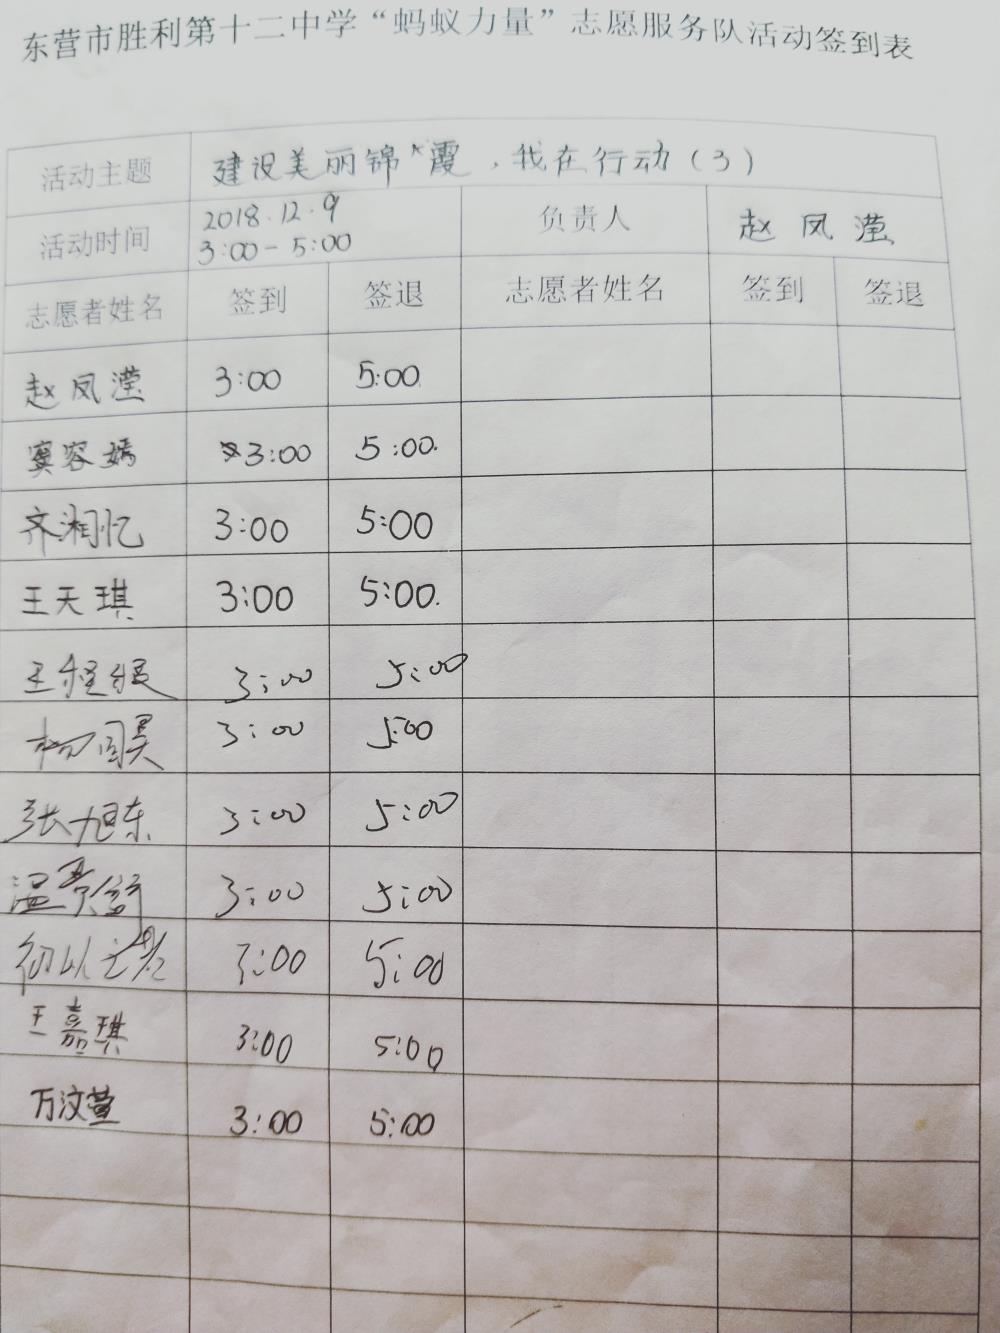 东营市胜利第十二中学“蚂蚁力量”志愿服务队活动签到表
活动主题 建设美丽锦霞,我在行动(3)
活动时间 2018.12.9 3:00-5:00 负责人 赵凤滢
志愿者姓名 签到 签退 志愿者姓名 签到 签退
赵凤滢 3:00 5:00
窦容嫣 3:00 5:00.
齐湘忆 3:00 5:00
王天琪 3:00 5:00.
3:00 5:00
杨国昊 3:00 5:00
张旭东 3:00 5:00
3:00 5:00
3:00 5:00
王嘉琪 3:00 5:00
万汶萱 3:00 5:00